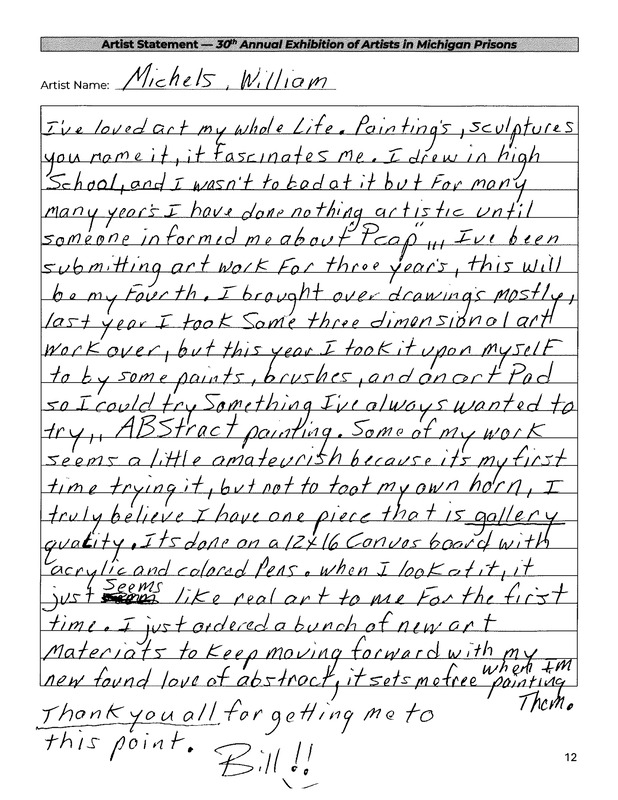 Artist Statement — 30th Annual Exhibition of Artists in Michigan Prisons
Artist Name: Michels, William
I've loved art my whole Life. Painting's, sculptures
you name it, it fascinates me. I drew in high
School, and I wasn't to bad at it but For many
many year's I have done nothing artistic until
someone informed me about "Pcap",,, I've been
submitting art work For three year's, this will
be my Fourth. I brought over drawing's mostly,
last year I took Some three dimensional art
work over, but this year I took it upon myself
to by some paints, brushes, and an art Pad
so I could try Something I've always wanted to
try,, ABStract painting. Some of my work
seems a little amateurish because its my first
time trying it, but not to toot my own horn, I
truly believe I have one piece that is gallery
quality. Its done on a 12x16 Canvas board with
acrylic and colored Pens. when I look at it, it
just Seems like real art to me For the first
time. I just ordered a bunch of new art
Materials to Keep moving forward with my
new found love of abstract, it sets me free when I'm painting
Them.
Thank you all for getting me to
this point.
Bill!!
12